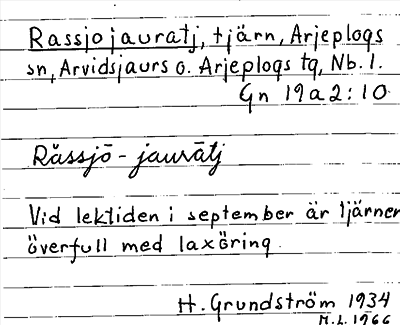 Rassjojauratj, tjärn, Arjeplogs
sn, Arvidsjaurs o. Arjeplogs tg, Nb. l.
Gn 19a2:10
Råssjō - jaurātj
Vid lektiden i september är tjärnen
överfull med laxöring.
H. Grundström 1934
M.L. 1966